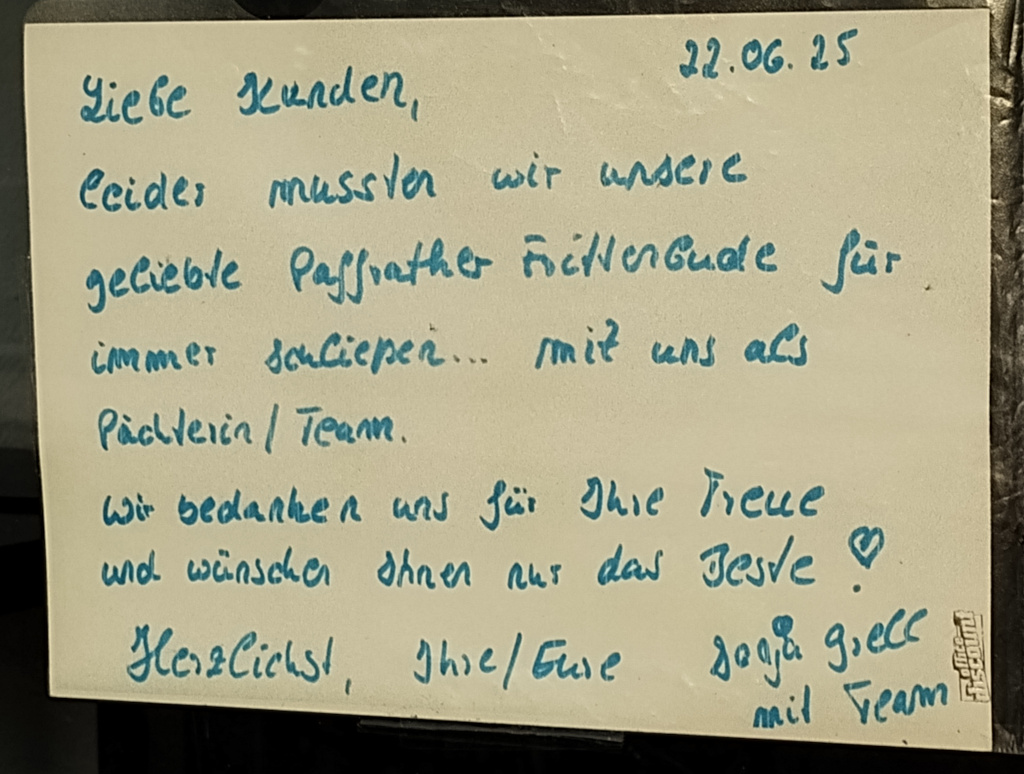 22.06.25
Liebe Kunden,
leider mussten wir unsere
geliebte Paffrather Frittenbude für
immer schließen... mit uns als
Pächterin/Team.
wir bedanken uns für Ihre Treue
und wünschen Ihnen nur das Beste!
Herzlichst, Ihre/Eure Grell
mit Team
office
discount